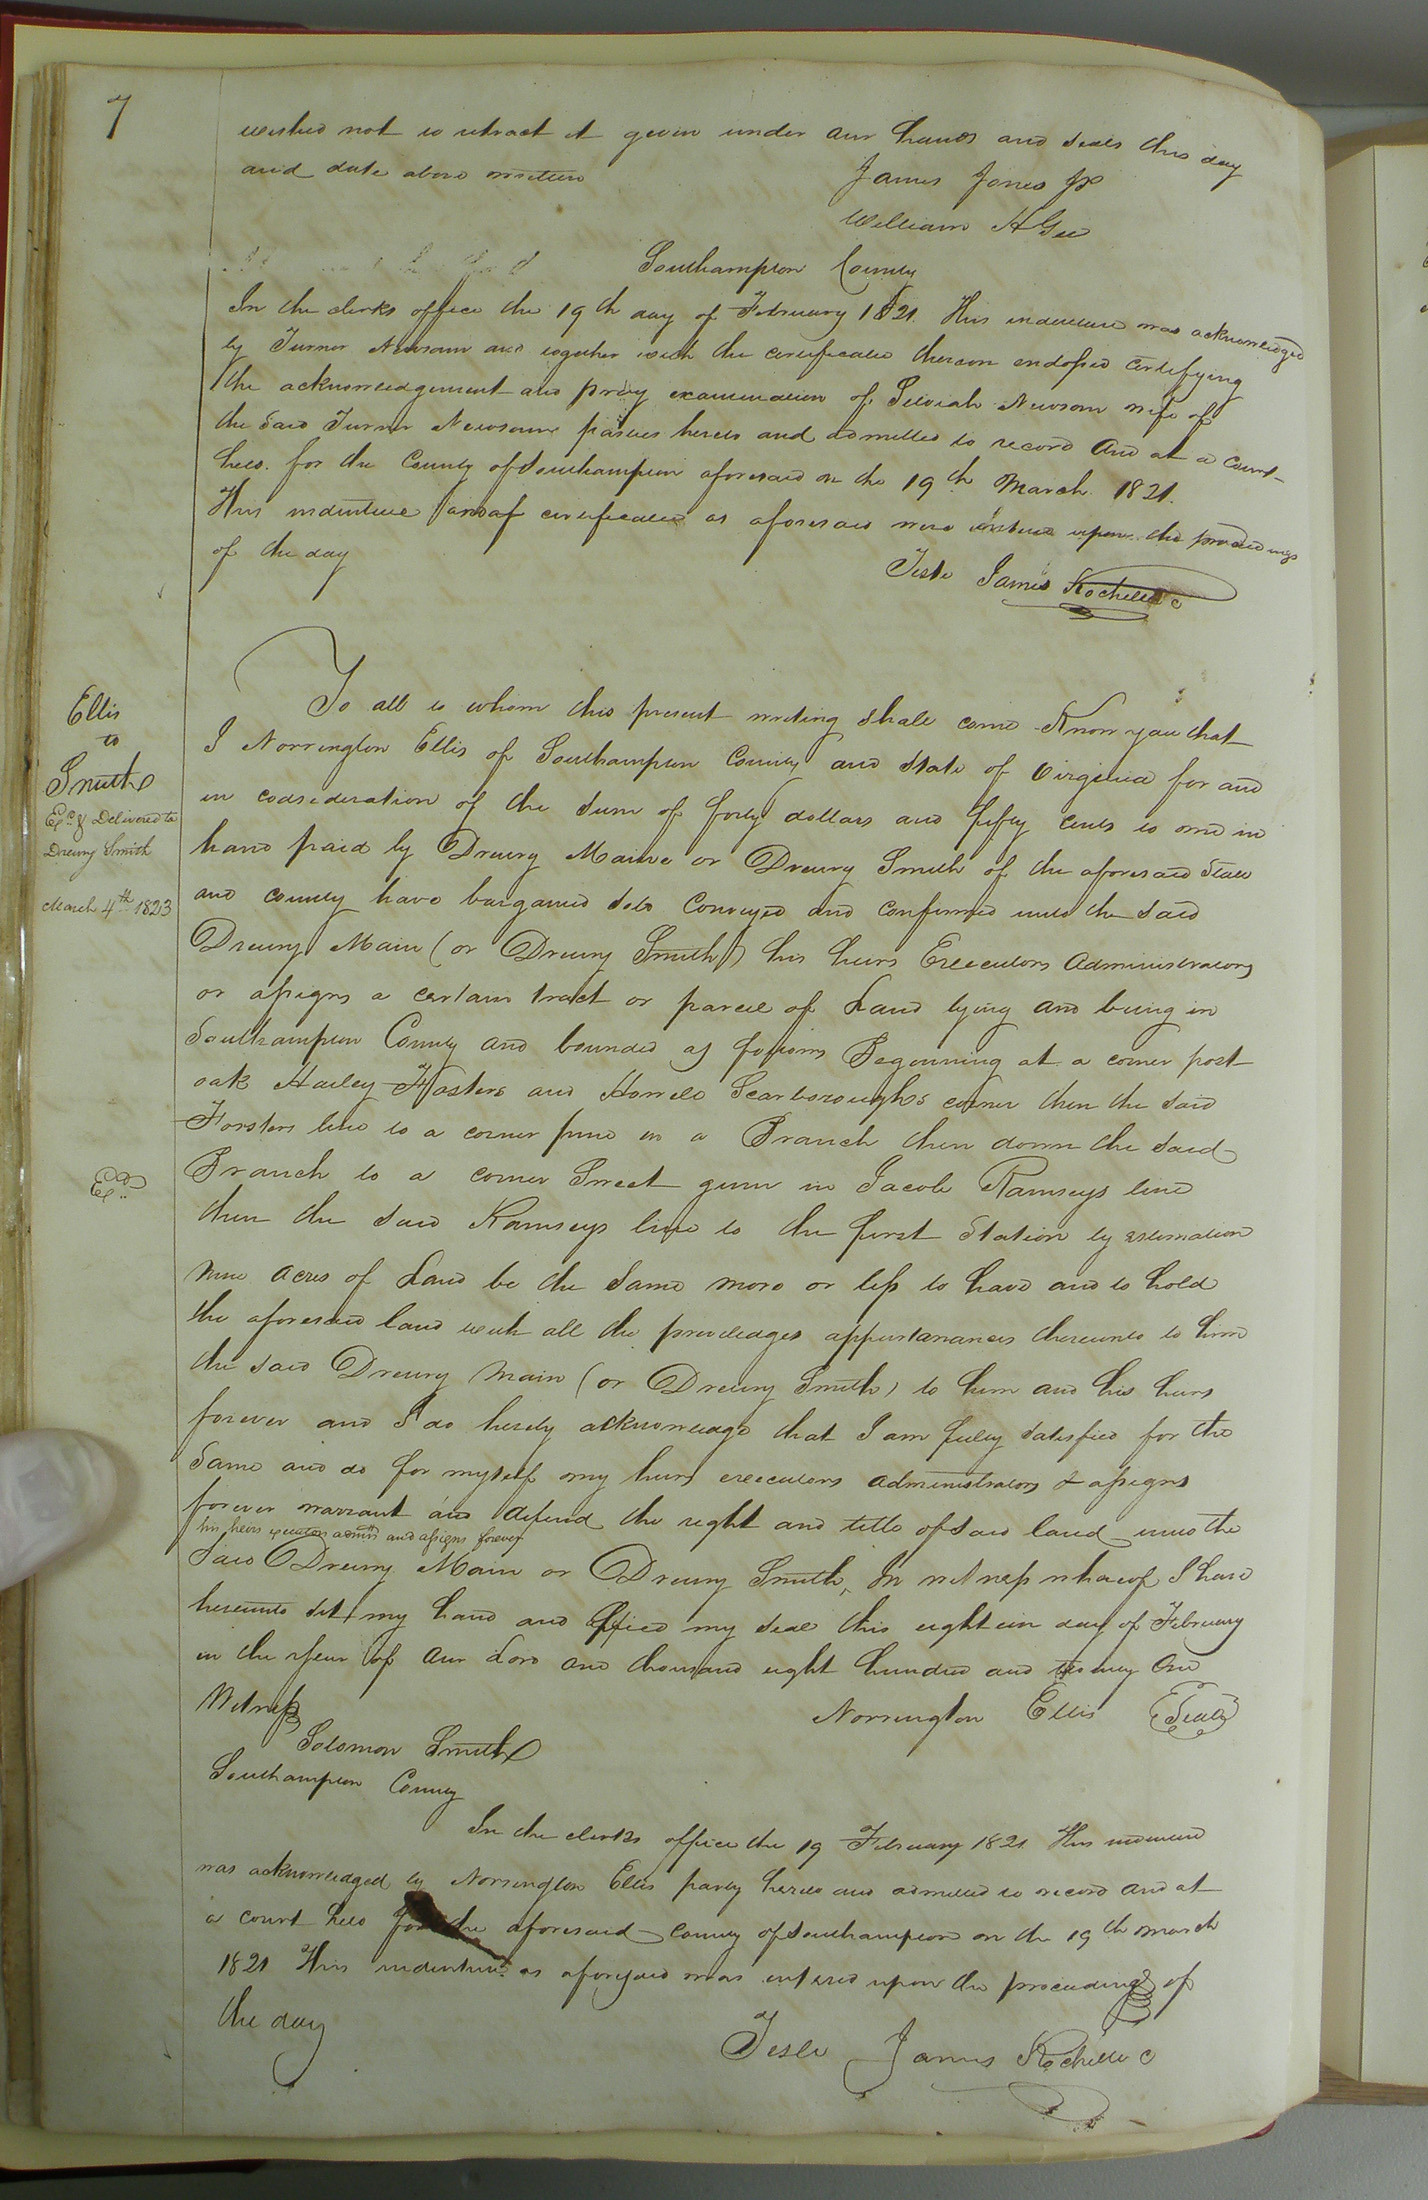 7
wished not to retract it given under our hands and seals this day
and date above written
James Jones Jr
William H Gee
Southampton County
In the clerks office the 19th day of February 1821. This indenture was acknowledged
by Turner Newsom and together with the certificates thereon endorsed certifying
the acknowledgement and privy examination of wife of
the said Turner Newsom parties hereto and admitted to record And at a court
held for the County of Southampton aforesaid on the 19th March 1821.
This indenture and certificates as aforesaid were entered upon the proceedings
of the day
Teste James Rochelle C
Ellis
to
Smith
Ex.d & Delivered to
Drewry Smith
March 4th 1823
To all to whom this present writing shall come Know you that
I Norrington Ellis of Southampton County and State of Virginia for and
in considieration of the Sum of forty dollars and fifty cents to me in
hand paid by Drewry Maine or Drewry Smith of the aforesaid State
and county have bargained sold Conveyed and confirmed unto the said
Drewry Main (or Drewry Smith) his heirs Executors Administrators
or assigns a certain tract or parcel of Land lying and being in
Southampton County and bounded as follows Begonning at a corner post
oak Hailey Fosters and Howell Scarboroughs corner then the said
Forsters line to a corner pine in a Branch then down the said
Branch to a corner Sweet gum in Jacob Ramseys line
Ex.d
then the said Ramseys line to the first Station by estimation
nine acres of Land be the same more or less to have and to hold
the aforesaid land with all the priviledges appurtanances thereunto to him
the said Drewry Main (or Drewry Smith) to him and his heirs
forever and I do hereby acknowledge that I am fully satisfied for the
Same and do for myself my heirs executors administrators & assigns
forever warrant and defend the right and title of said land unto the
his heirs executors admrs and assigns forever
said Drewry Main or Drewry Smith, In witness whereof I have
hereunto set my hand and affixed my seal this eighteen day of February
in the year of our Lord one thousand eight hundred and twenty one
Witness
Norrington Ellis (Seal)
Solomon Smith
Southampton County
In the clerks office the 19 February 1821 This indenture
was acknowledged by Norrington Ellis party hereto and admitted to record And at
a court held for the aforesaid County of Southampton on the 19th March
1821 This indenture as aforesaid was entered upon the proceedings of
the day
Teste James Rochelle C